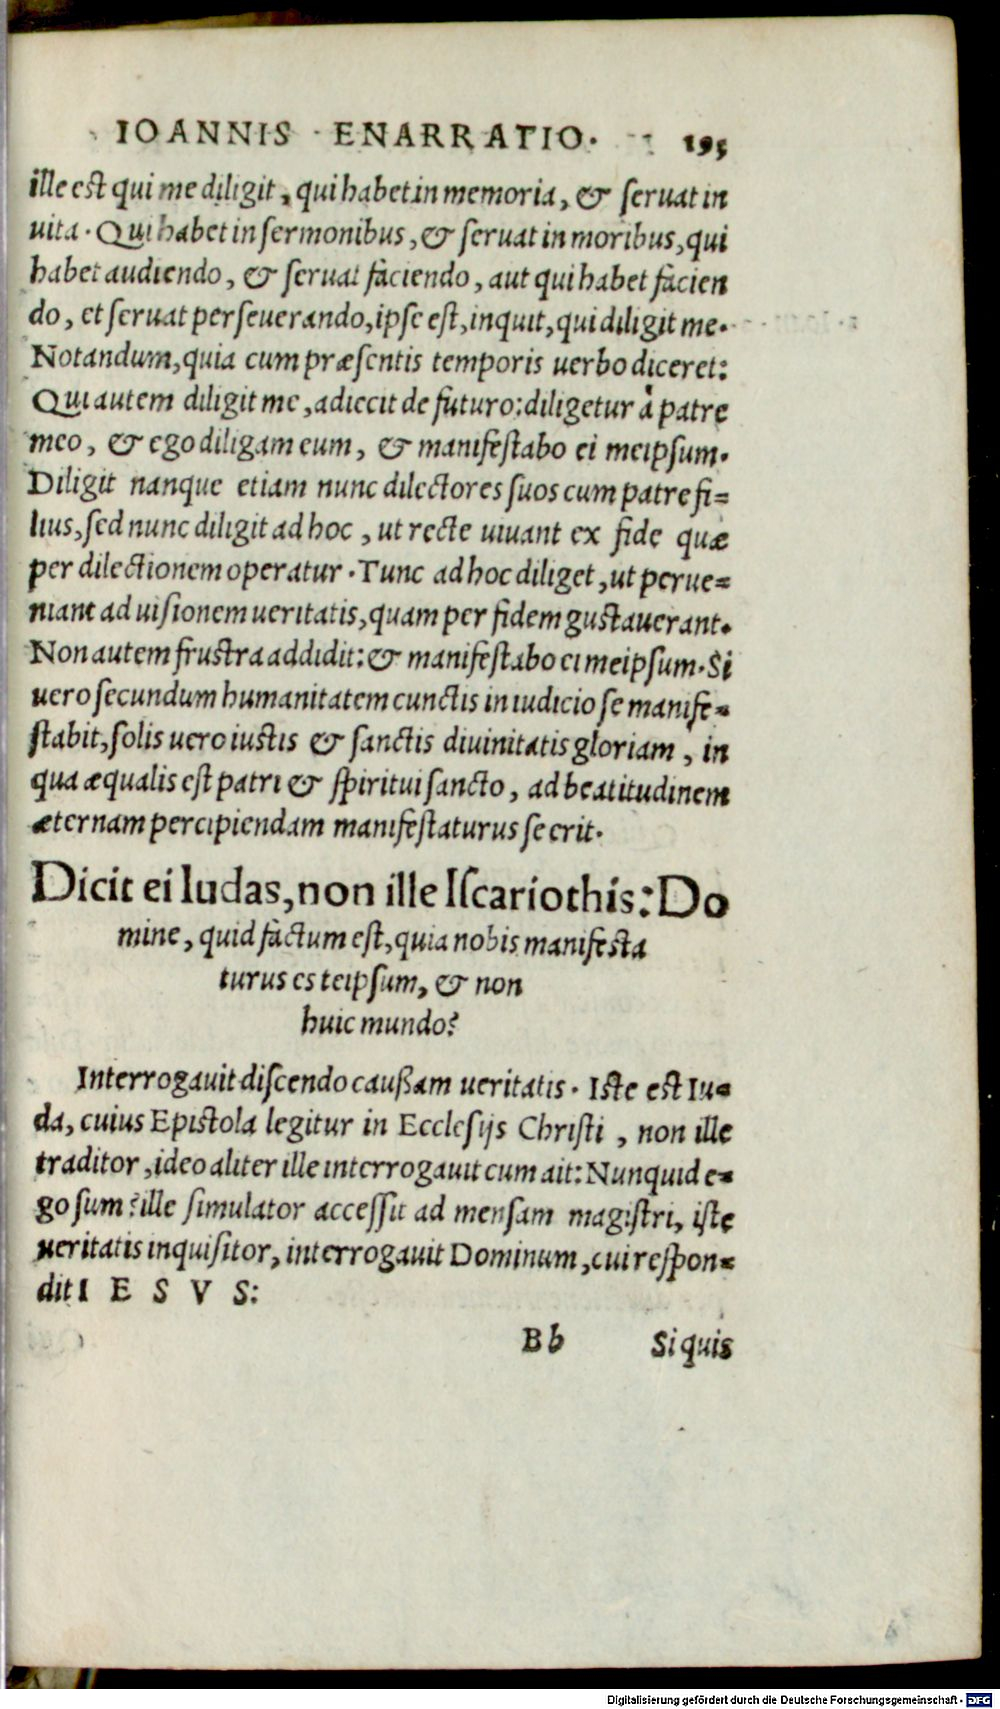 IOANNIS ENARRATIO. 195
ille est qui me diligit, qui habet in memoria, & seruat in
uita. Qui habet in sermonibus, & seruat in moribus, qui
habet audiendo, & seruat faciendo, aut qui habet facien
do, et seruat perseuerando, ipse est, inquit, qui diligit me.
Notandum, quia cum præsentis temporis uerbo diceret:
Qui autem diligit me, adiecit de futuro: diligetur à patre
meo, & ego diligam eum, & manifestabo ei meipsum.
Diligit nanque etiam nunc dilectores suos cum patre fi=
lius, sed nunc diligit ad hoc, ut recte uiuant ex fide quæ
per dilectionem operatur. Tunc ad hoc diliget, ut perue=
niant ad uisionem ueritatis, quam per fidem gustauerant.
Non autem frustra addidit: & manifestabo ei meipsum. Si
uero secundum humanitatem cunctis in iudicio se manife=
stabit, solis uero iustis & sanctis diuinitatis gloriam, in
qua æqualis est patri & spiritui sancto, ad beatitudinem
æternam percipiendam manifestaturus se erit.
Dicit ei Iudas, non ille Iscariothis: Do
mine, quid factum est, quia nobis manifesta
turus es teipsum, & non
huic mundo?
Interrogauit discendo caußam ueritatis. Iste est Iu=
da, cuius Epistola legitur in Ecclesijs Christi, non ille
traditor, ideo aliter ille interrogauit cum ait: Nunquid e=
go sum? ille simulator accessit ad mensam magistri, iste
ueritatis inquisitor, interrogauit Dominum, cui respon=
dit I E S V S:
Bb Si quis
Digitalisierung gefördert durch die Deutsche Forschungsgemeinschaft - DFG